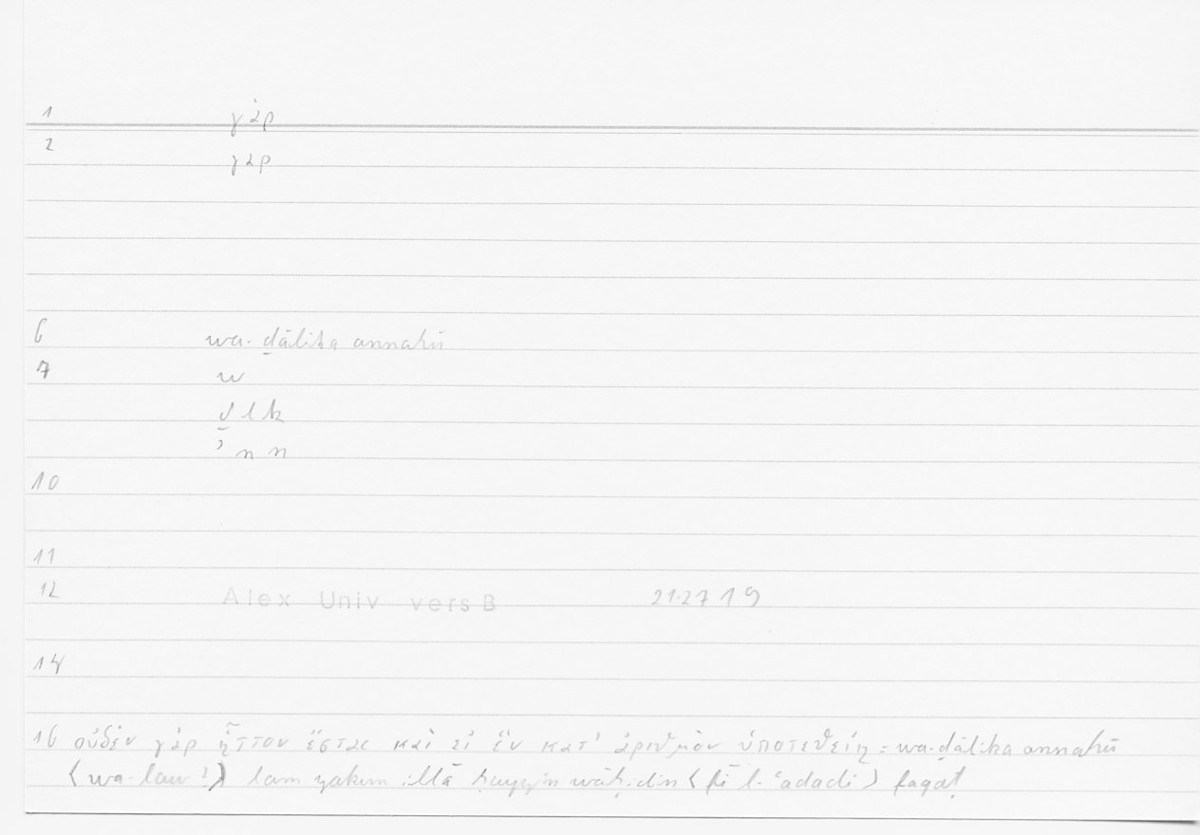 1 γὰρ
2 γὰρ
6 wa-ḏālika annahū
7 w
ḏlk
ʾnn
10
11
12 Alex Univ vers B 21.27 19
14
16 οὐδὲν γὰρ ἧττον ἔσται καὶ εἰ ἓν κατ' ἀριθμὸν ὑποτεθείη = wa-ḏālika annahū
⟨wa-law !⟩ lam yakun illā wāḥidin ⟨fī l-ʿadadi⟩ faqaṭ